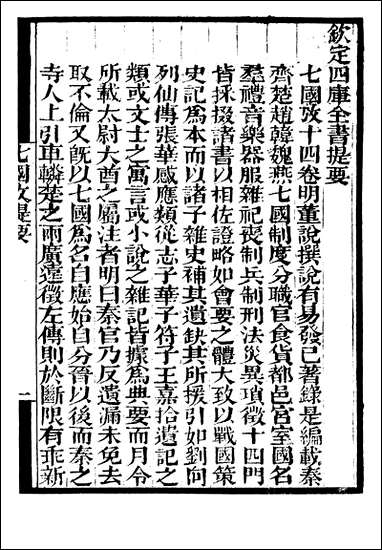 欽定四庫全書提要
七國攷十四卷明董說撰說有易發已著錄是編載秦
齊楚趙韓魏燕七國制度分職官食貨都邑宮室國名
羣禮音樂器服雜祀喪制兵制刑法災異瑣徵十四門
皆採掇諸書以相佐證略如會要之體大致以戰國策
史記爲本而以諸子雜史補其遺缺其所援引如劉向
列仙傳張華感應類從志子華子符子王嘉拾遺記之
類或文士之寓言或小說之雜記皆據爲典要而月令
所載太尉大酋之屬注者明曰秦官乃反遺漏未免去
取不倫又旣以七國爲名自應始自分晉以後而秦之
寺人上引車轔楚之兩廣遠徵左傳則於斷限有乖新
七國攷提要
一